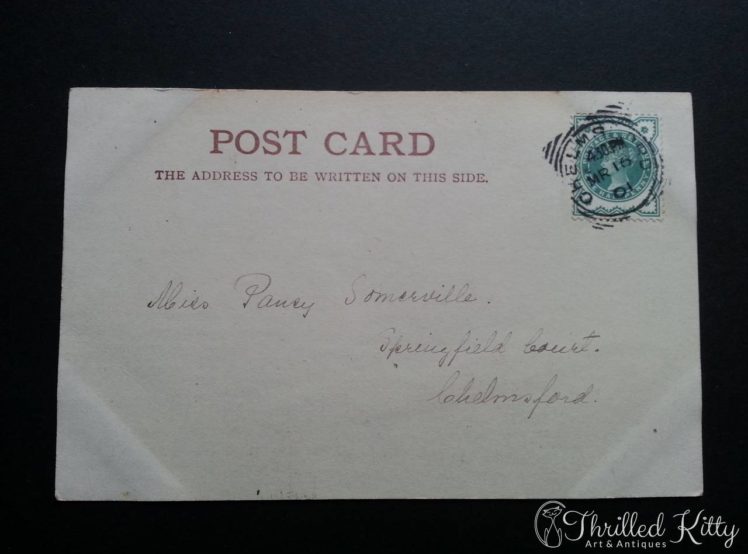 POST CARD
THE ADDRESS TO BE WRITTEN ON THIS SIDE.
CHELMS
MR 16
01
Miss Pansy Somerville.
Springfield Court.
Chelmsford.
Thrilled Kitty
Art & Antiques